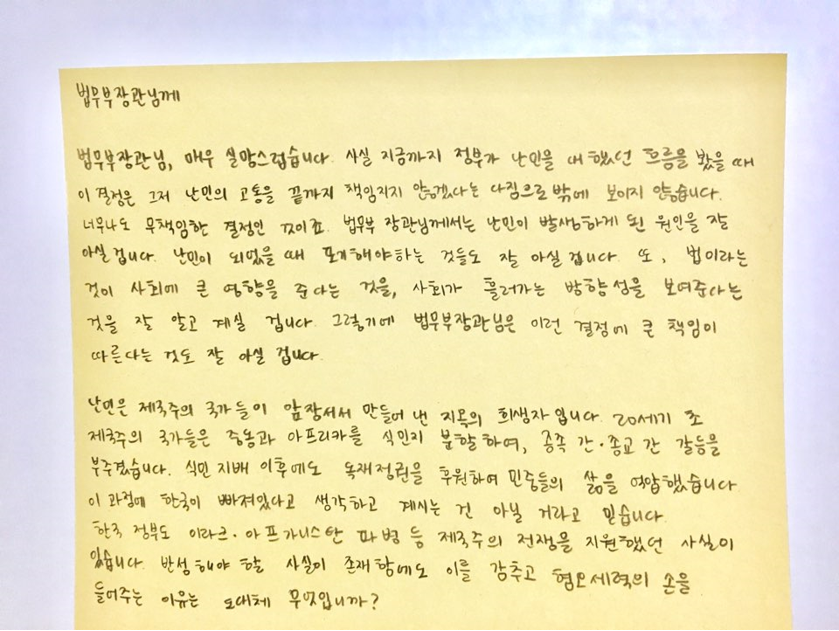 법무부장관님께
법무부장관님, 매우 실망스럽습니다. 사실 지금까지 정부가 난민을 대했던 흐름을 봤을 때
이 결정은 그저 난민의 고통을 끝까지 책임지지 않겠다는 다짐으로밖에 보이지 않습니다.
너무나도 무책임한 결정인 것이죠. 법무부 장관님께서는 난민이 발생하게 된 원인을 잘
아실 겁니다. 난민이 되었을 때 포기해야하는 것들도 잘 아실 겁니다. 또, 법이라는
것이 사회에 큰 영향을 준다는 것을, 사회가 흘러가는 방향성을 보여준다는
것을 잘 알고 계실 겁니다. 그렇기에 법무부장관님은 이런 결정에 큰 책임이
따른다는 것도 잘 아실 겁니다.
난민은 제국주의 국가들이 앞장서서 만들어 낸 지옥의 희생자입니다. 20세기 초
제국주의 국가들은 중동과 아프리카를 식민지 분할하여, 종족 간·종교 간 갈등을
부추겼습니다. 식민 지배 이후에도 독재정권을 후원하여 민중들의 삶을 억압했습니다.
이 과정에 한국이 빠져있다고 생각하고 계시는 건 아닐 거라고 믿습니다.
한국 정부도 이라크·아프가니스탄 파병 등 제국주의 전쟁을 지원했던 사실이
있습니다. 반성해야 할 사실이 존재함에도 이를 감추고 혐오세력의 손을
들어주는 이유는 도대체 무엇입니까?